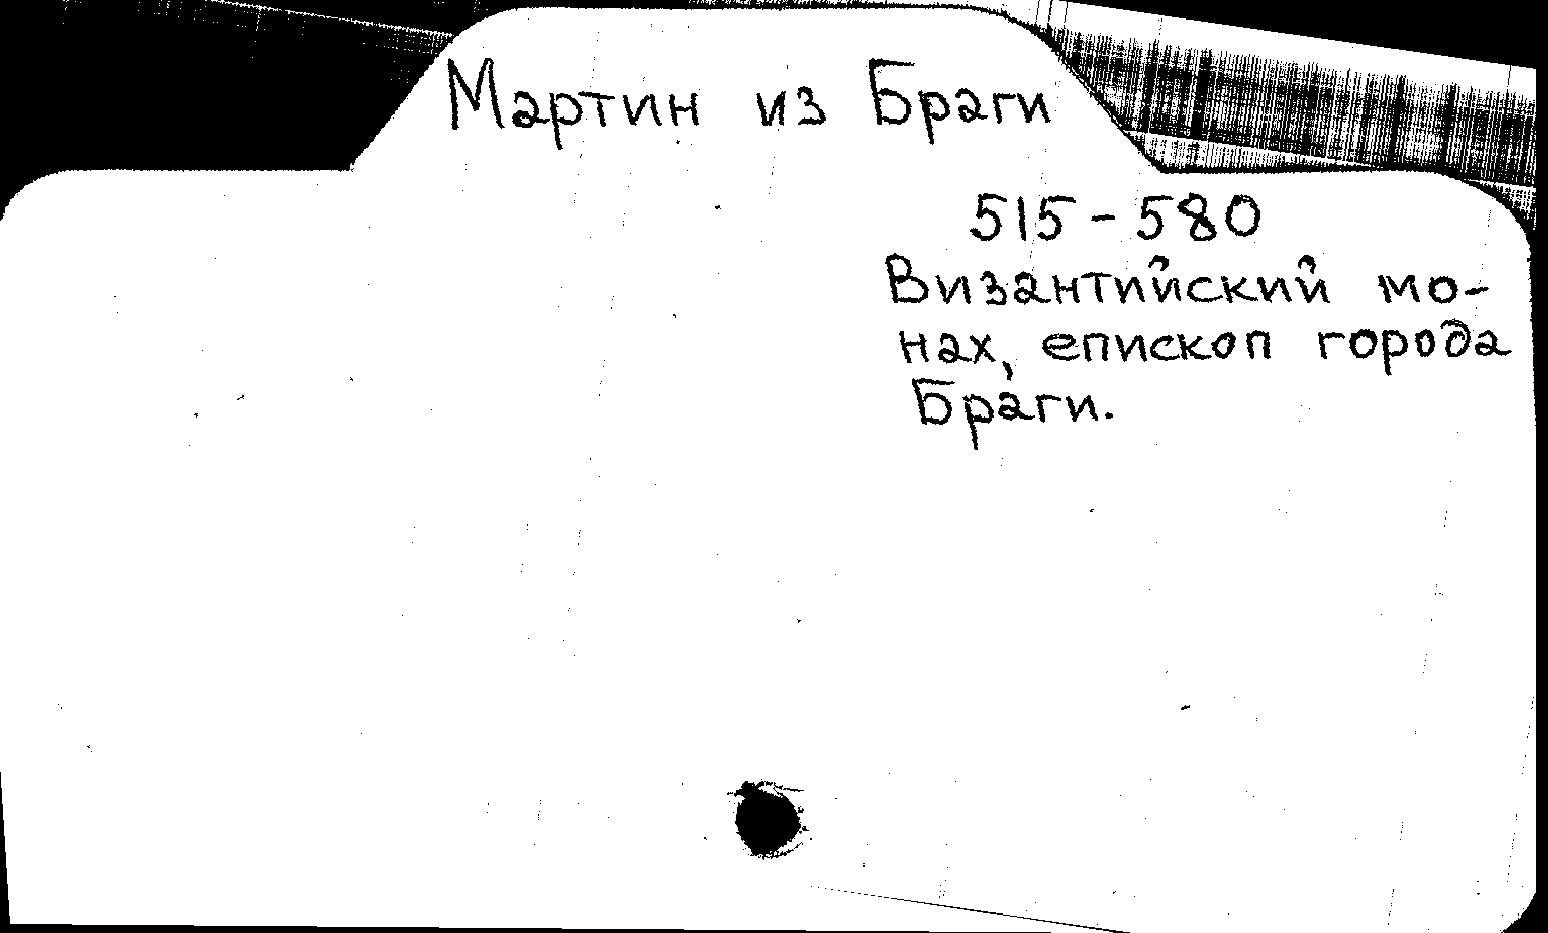 Мартин из Браги
515-580
Византийский мо-
нах, епископ города
Браги.